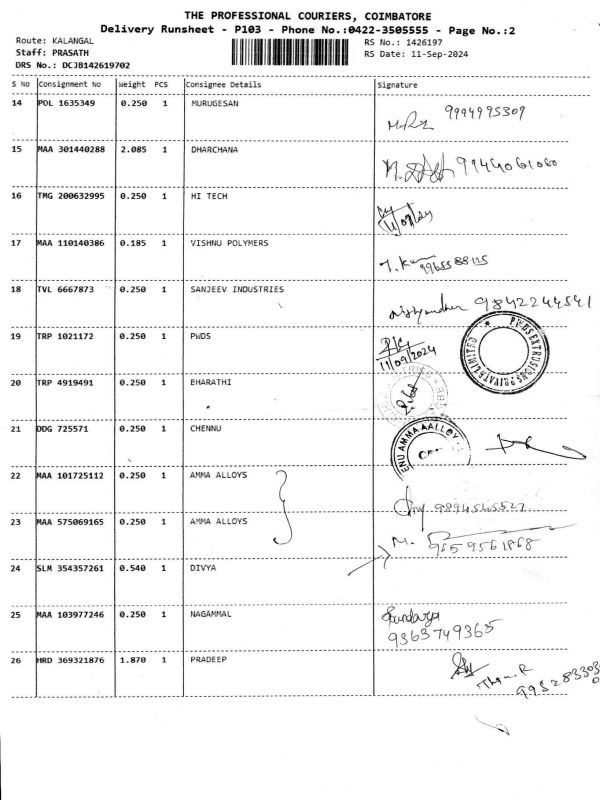 THE PROFESSIONAL COURIERS, COIMBATORE
Delivery Runsheet - P103 - Phone No.:0422-3505555 - Page No.:2
Route: KALANGAL
RS No.: 1426197
Staff: PRASATH
RS Date: 11-Sep-2024
DRS No.: DCJB142619702
S No Consignment No Weight PCS Consignee Details Signature
14 POL 1635349 0.250 1 MURUGESAN 9994995309
15 MAA 301440288 2.085 1 DHARCHANA
16 TMG 200632995 0.250 1 HI TECH 11/09/24
17 MAA 110140386 0.185 1 VISHNU POLYMERS 9965588115
18 TVL 6667873 0.250 1 SANJEEV INDUSTRIES 9842244541
19 TRP 1021172 0.250 1 PWDS 11/09/2024
PWDS EXTRUSIONS PRIVATE LIMITED
20 TRP 4919491 0.250 1 BHARATHI
21 DDG 725571 0.250 1 CHENNU
ENU AMMA ALLOY
22 MAA 101725112 0.250 1 AMMA ALLOYS 9894545527
23 MAA 575069165 0.250 1 AMMA ALLOYS M. 9659561868
24 SLM 354357261 0.540 1 DIVYA
25 MAA 103977246 0.250 1 NAGAMMAL 9363749365
26 HRD 369321876 1.870 1 PRADEEP